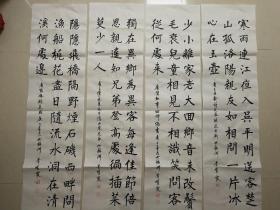 寒雨連江夜入吳平明送客楚
山孤洛陽親友如相問一片冰
心在玉壺
少小離家老大回鄉音未改鬢
毛衰兒童相見不相識笑問客
從何處來
獨在異鄉為異客每逢佳節倍
思親遙知兄弟登高處遍插茱
萸少一人
隱隱飛橋隔野煙石磯西畔問
漁船桃花盡日隨流水洞在清
溪何處邊